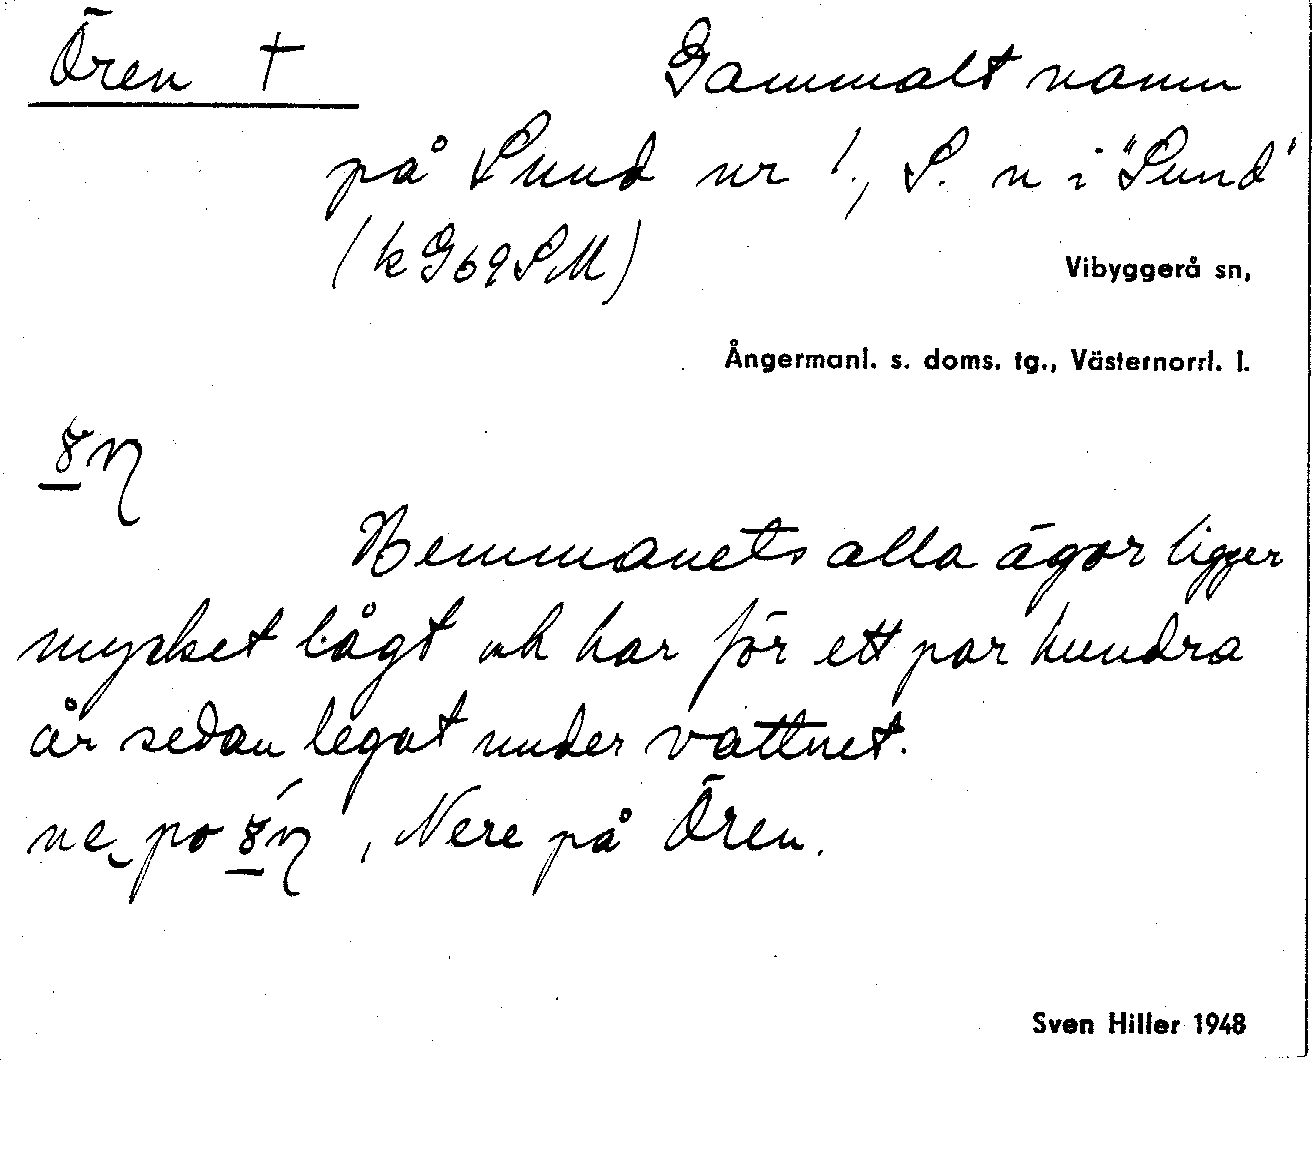 Ören †
Gammalt namn
på Lund nr 1., S. n i "Sund"
(k G69SM)
Vibyggerå sn,
Ångermanl. s. doms. tg., Västernorrl. l.
Hemmanets alla ägor ligger
mycket lågt och har för ett par hundra
år sedan legat under vattnet.
ne po , Nere på Ören.
Sven Hiller 1948